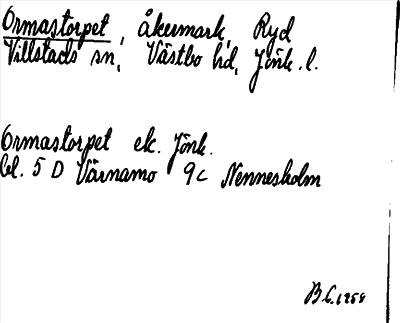 Ormastorpet, åkermark, Ryd
Villstads sn, Västbo hd, Jönk. l.
Ormastorpet ek. Jönk.
bl. 5 D Värnamo 9c Nennesholm